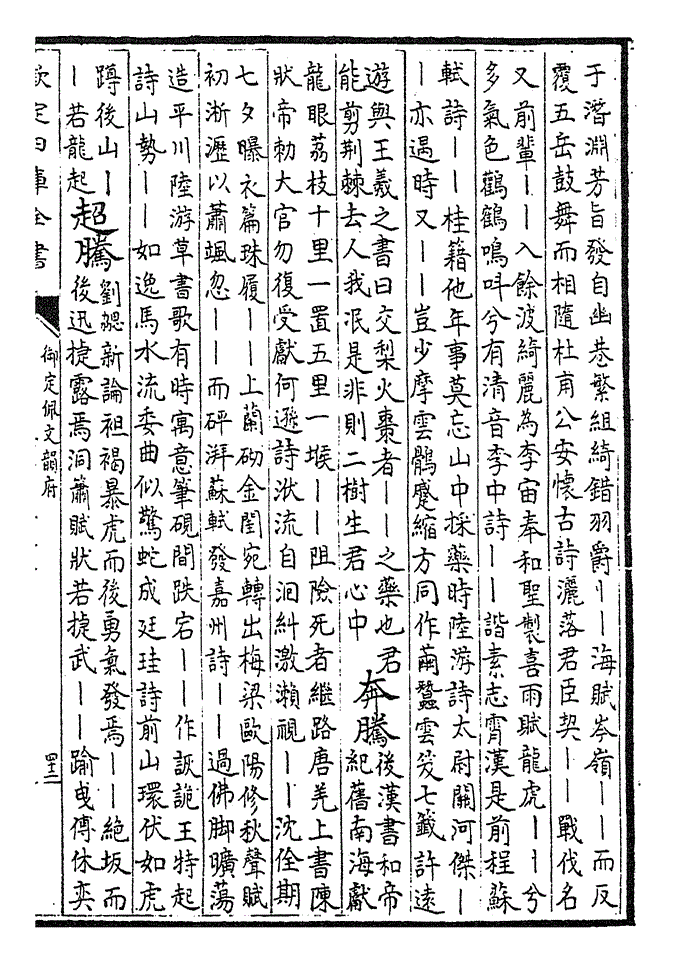 于潛淵芳旨發自幽巷繁組綺錯羽爵丨丨海賦岑嶺丨丨而反
覆五岳鼓舞而相隨杜甫公安懷古詩灑落君臣契丨丨戰伐名
又前輩丨丨入餘波綺麗為李宙奉和聖製喜雨賦龍虎丨丨兮
多氣色鸛鶴鳴呌兮有清音李中詩丨丨諧素志霄漢是前程蘇
軾詩丨丨桂籍他年事莫忘山中採藥時陸游詩太尉關河傑丨
丨亦遇時又丨丨豈少摩雲鶻蹙縮方同作繭蠶雲笈七籤許遠
遊與王羲之書曰交梨火棗者丨丨之藥也君
能剪荆棘去人我泯是非則二樹生君心中
奔騰
後漢書和帝
紀舊南海獻
龍眼荔枝十里一置五里一堠丨丨阻險死者繼路唐羌上書陳
狀帝勅大官勿復受獻何遜詩洑流自洄糾激瀨視丨丨沈佺期
七夕曝衣篇珠履丨丨上蘭砌金閨宛轉出梅梁歐陽修秋聲賦
初淅瀝以蕭颯忽丨丨而砰湃蘇軾發嘉州詩丨丨過佛脚曠蕩
造平川陸游草書歌有時寓意筆硯間跌宕丨丨作詼詭王特起
詩山勢丨丨如逸馬水流委曲似驚蛇成廷珪詩前山環伏如虎
蹲後山丨
丨若龍起
超騰
劉勰新論袒裼暴虎而後勇氣發焉丨丨絶坂而
後迅捷露焉洞簫賦狀若捷武丨丨踰曵傅休奕
欽定四庫全書
御定佩文韻府
四十二